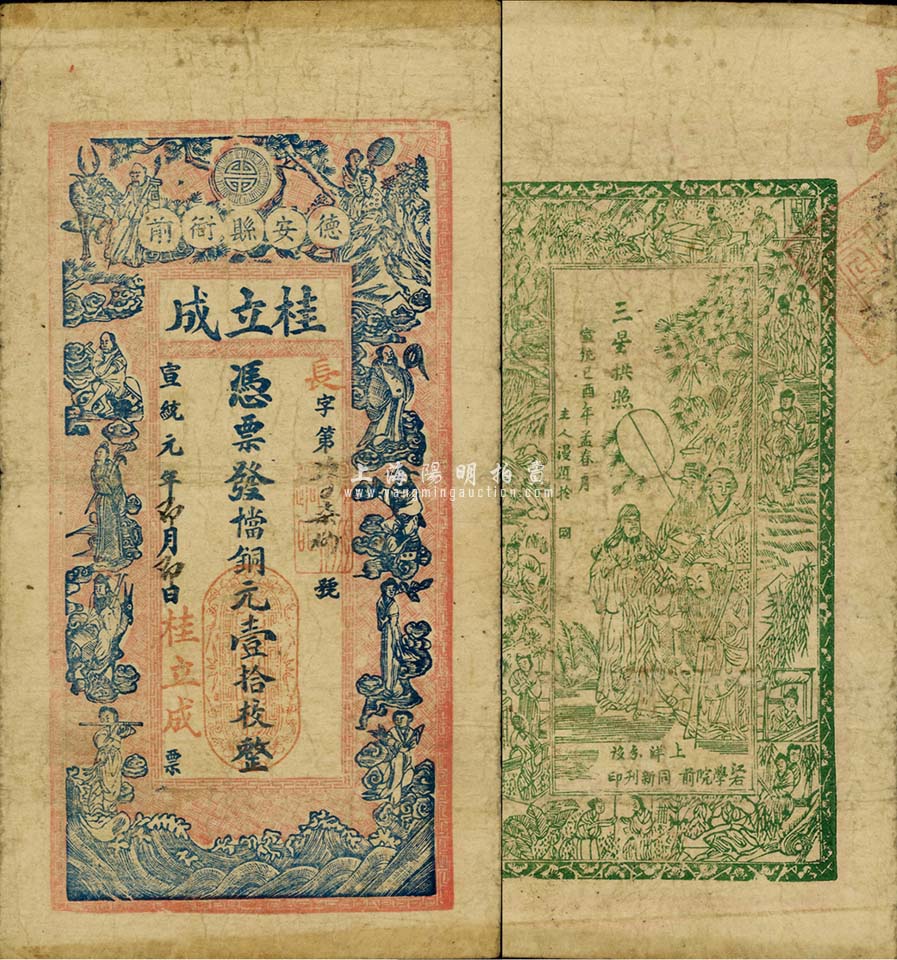 德安縣衙前
桂立成
長字第
號
憑票發檔銅元壹拾枚整
宣統元年卯月卯日
桂立成票
上海陽明拍賣
www.yangmingauction.com
長
三星拱照
宣統己酉年孟春月
主人漫題於
上洋分設
學院前同新刊印